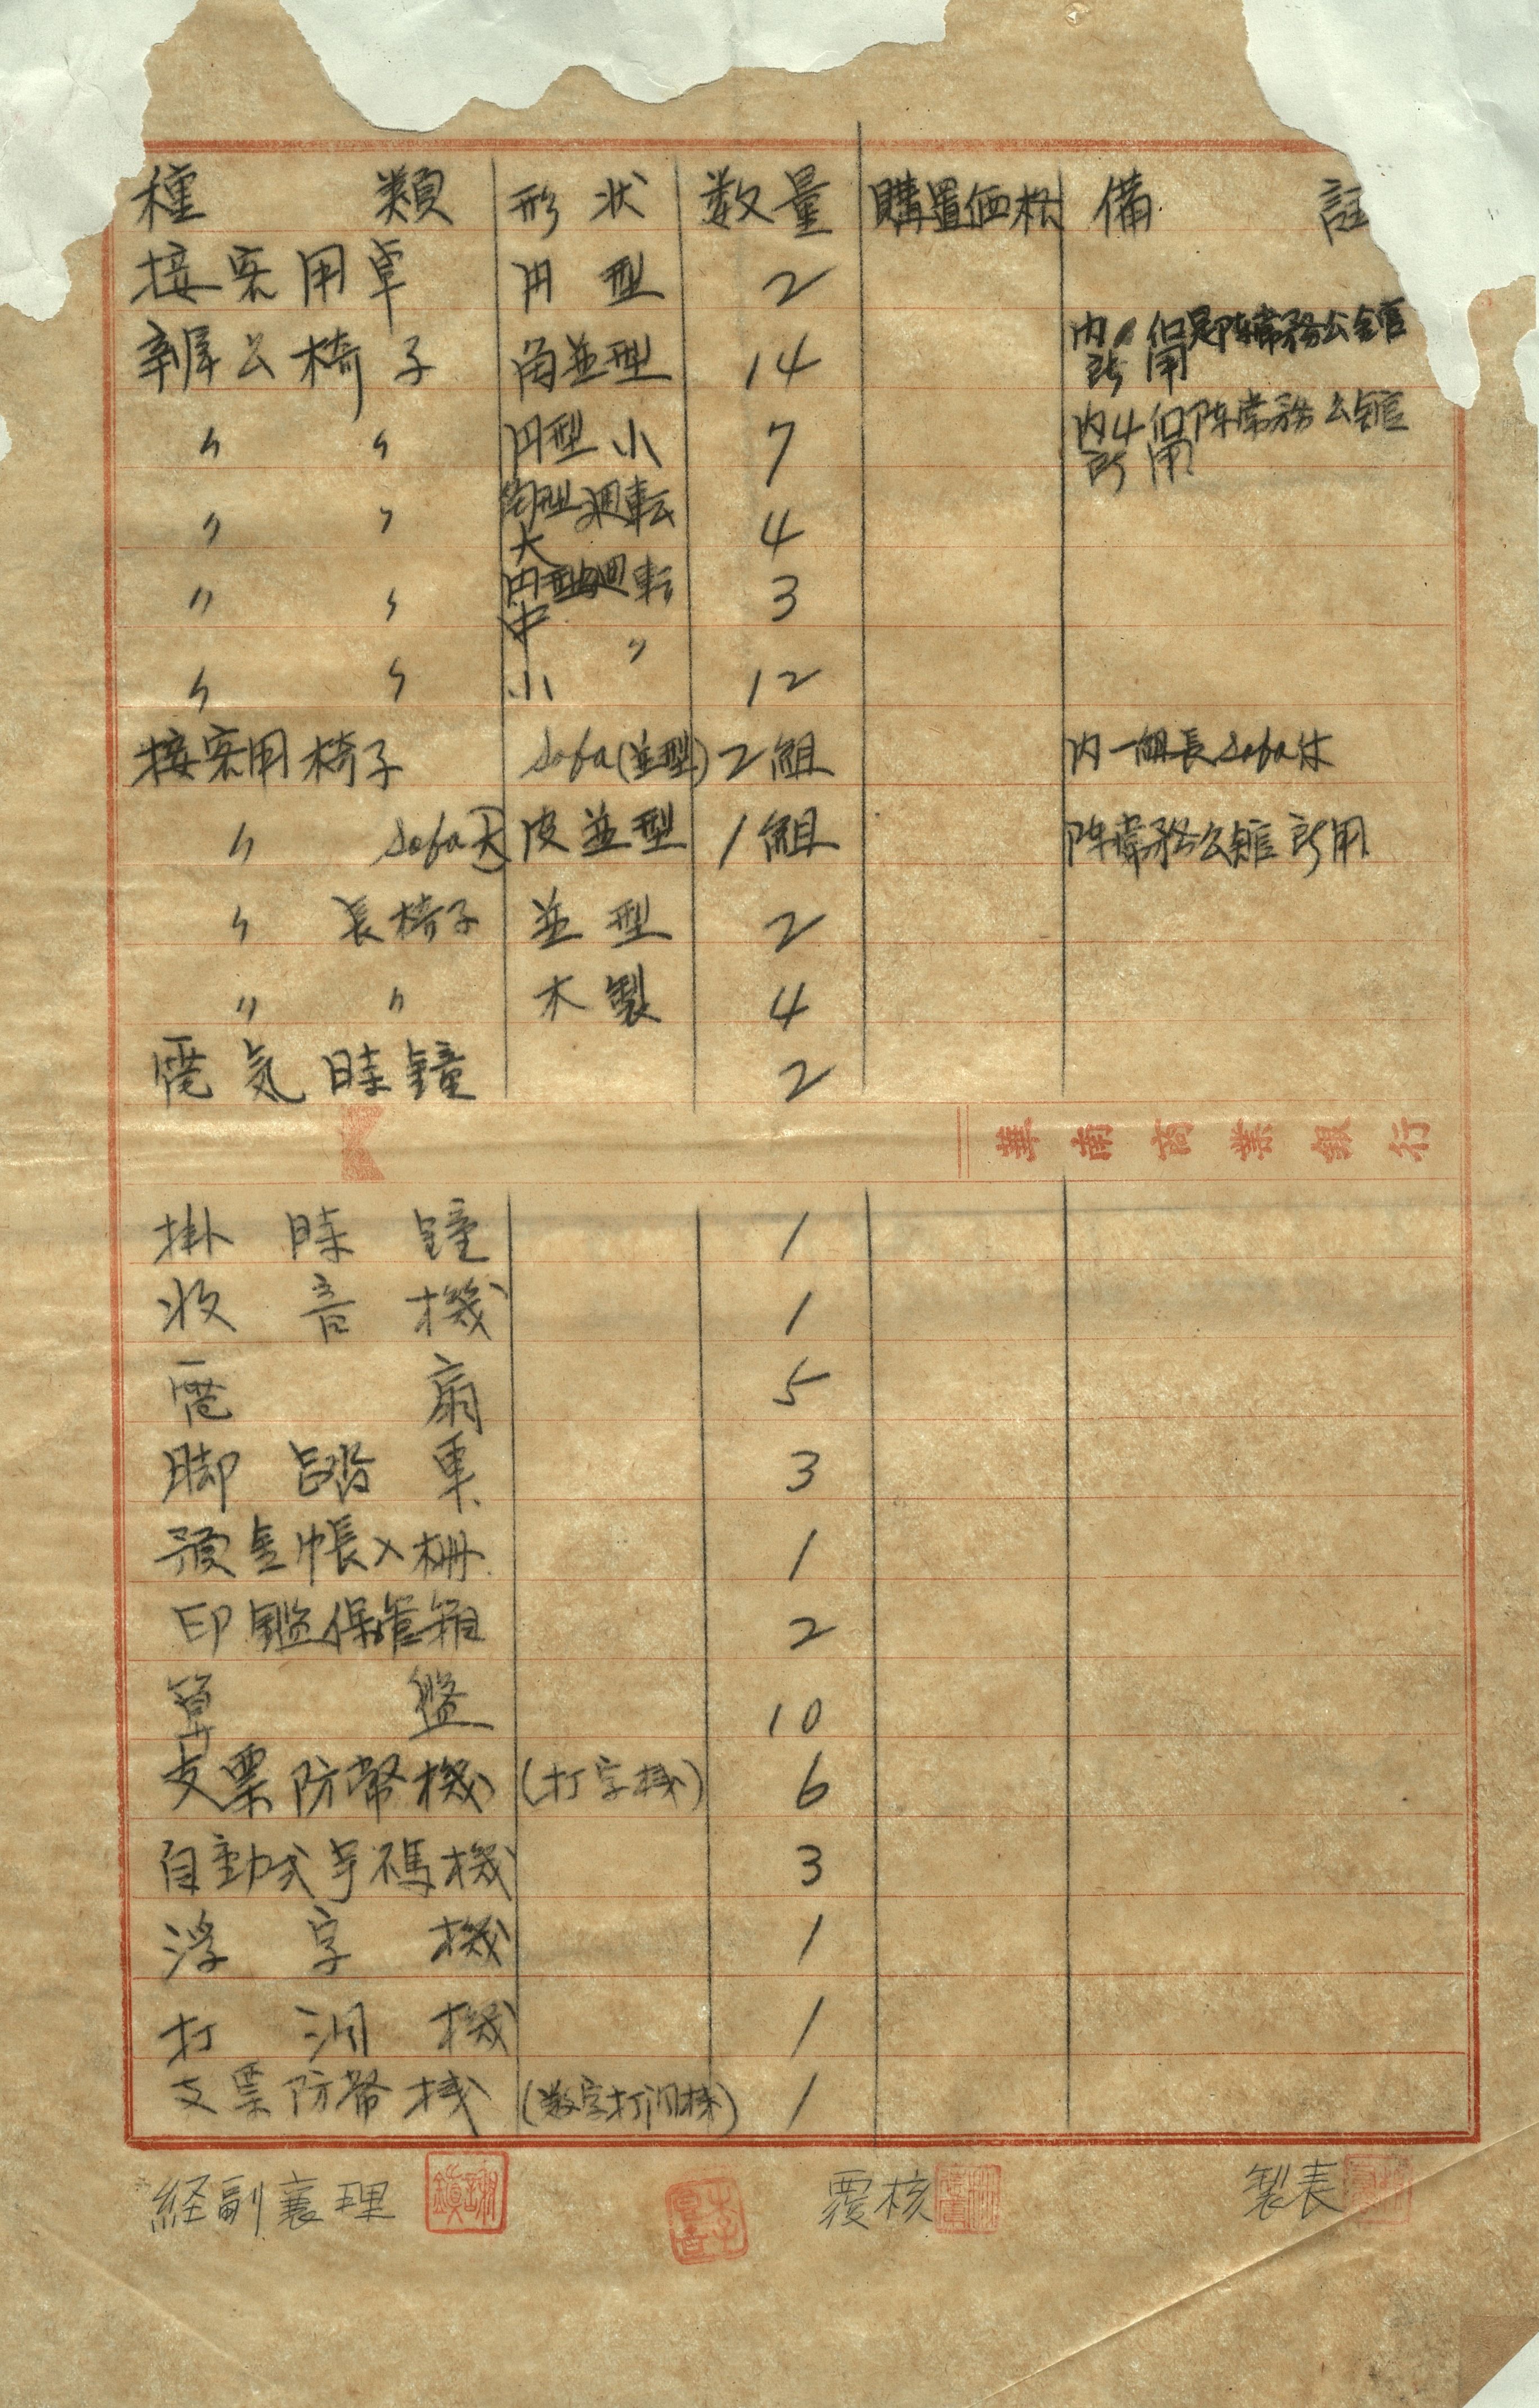 種類 形状 数量 購置価格 備註
接客用卓 円型 2
辦公椅子 角並型 14 内 個是陈常務公館所用
〃 〃 円型小 7 内4個陈常務公館所用
〃 〃 角型廻転大 4
〃 〃 円型廻転中 3
〃 〃 小 〃 12
接客用椅子 Sofa(並型) 2組 内一組長Sofa
〃 Sofa大 皮並型 1組 陈常務公館所用
〃 長椅子 並型 2
〃 〃 木製 4
電気時鐘 2
華南商業銀行
掛時鐘 1
收音機 1
電扇 5
脚踏車 3
預金帳入柵 1
印鑑保管箱 2
算盤 10
支票防幣機 (打字機) 6
自動式号碼機 3
浮字機 1
打洞機 1
支票防幣機 (数字打洞機) 1
経副襄理 覆核 製表